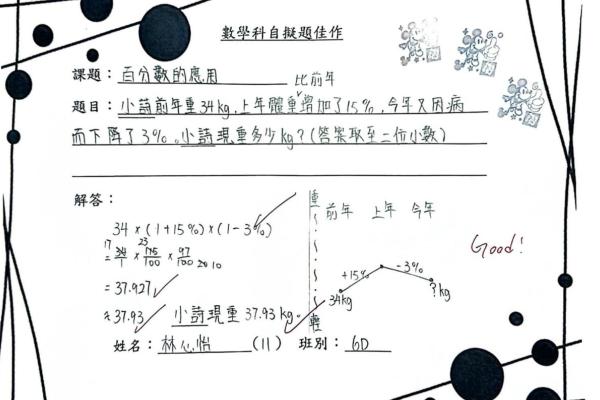 數學科自擬題佳作
課題：百分數的應用
比前年
題目：小詩前年重34kg，上年體重增加了15%，今年又因病
而下降了3%。小詩現重多少kg？(答案取至二位小數)
解答：
34×(1+15%)×(1-3%)
= 34/1 × 115/100 × 97/100
17 23 20 10
= 37.927
≈ 37.93 小詩現重37.93kg。
重
前年 上年 今年
+15% -3%
34kg ?kg
輕
Good!
姓名：林心怡 (11) 班別：6D